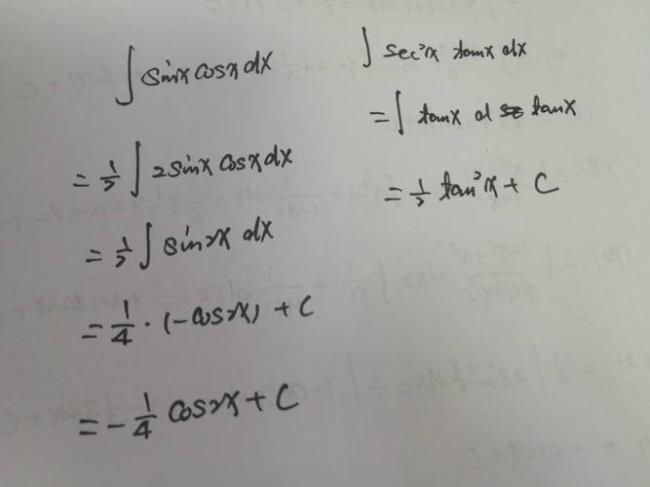 ∫ sinx cosx dx
= 1/2 ∫ 2sinx cosx dx
= 1/2 ∫ sin2x dx
= 1/4 · (-cos2x) + C
= - 1/4 cos2x + C
∫ sec²x tanx dx
= ∫ tanx d tanx
= 1/2 tan²x + C